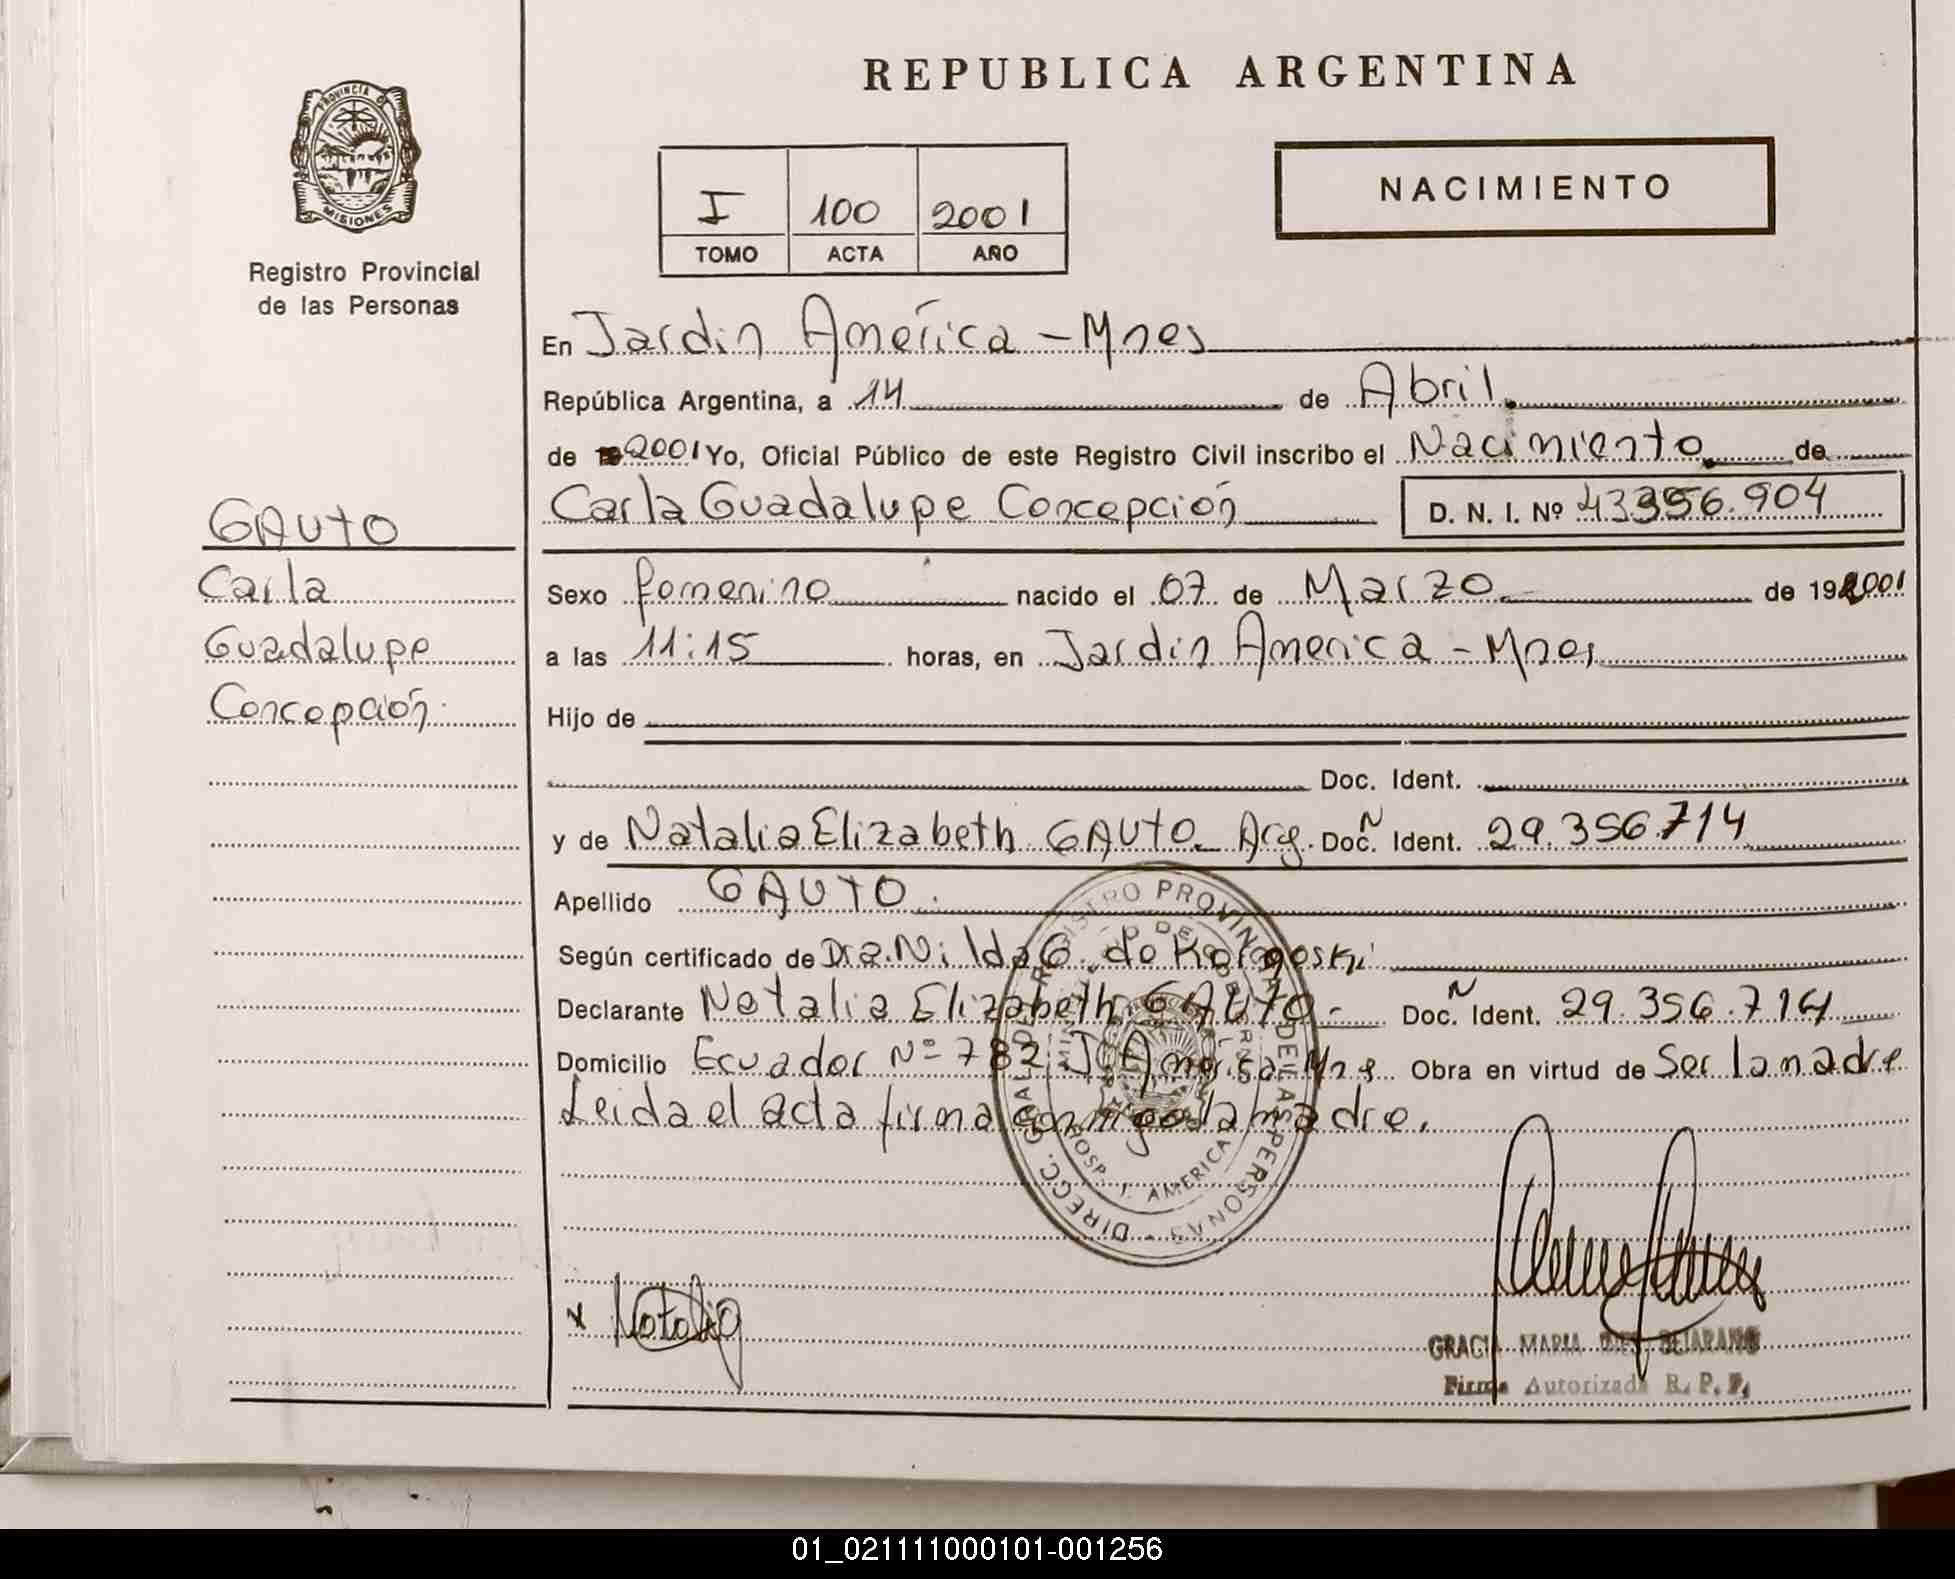 REPUBLICA ARGENTINA
PROVINCIA DE
MISIONES
Registro Provincial
de las Personas
I 100 2001
TOMO ACTA AÑO
NACIMIENTO
En Jardin América - Mnes
República Argentina, a 14 de Abril
de 2001 Yo, Oficial Público de este Registro Civil inscribo el Nacimiento de
Carla Guadalupe Concepción D. N. I. Nº 43.356.904
GAUTO
Carla
Guadalupe
Concepción
Sexo femenino nacido el 07 de Marzo de 192001
a las 11:15 horas, en Jardin America - Mnes
Hijo de
Doc. Ident.
y de Natalia Elizabeth GAUTO Arg. Doc. N Ident. 29.356.714
Apellido GAUTO.
Según certificado de Dra. Nilda G. de
Declarante Natalia Elizabeth GAUTO - Doc. N Ident. 29.356.714
Domicilio Ecuador Nº 782 J. America Mnes Obra en virtud de Ser la madre
Leida el acta firma conmigo la madre.
DIRECC. GRAL. DEL REGISTRO PROVINCIAL DE LAS PERSONAS
HOSP. J. AMERICA
x Natalia
GRACIA MARIA INES BEJARANO
Firma Autorizada R. P. P.
01_021111000101-001256